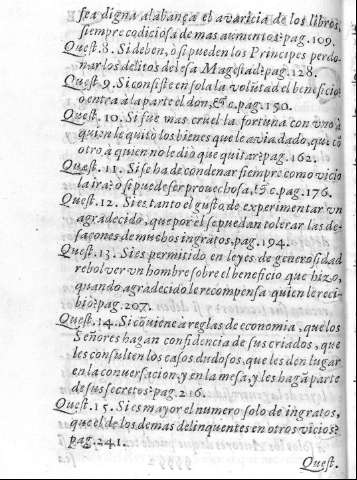 sea digna alabança el avaricia de los libros,
siempre codiciosa de mas aumentos? pag. 109.
Quest. 8. Si deben, ò si pueden los Principes perdo-
nar los delitos de lesa Magestad? pag. 128.
Quest. 9. Si consiste en sola la volũtad el beneficio,
o entra à la parte el don, &c. pag. 150.
Quest. 10. Si fue mas cruel la fortuna con vno à
quien le quitò los bienes que le avia dado, que cõ
otro à quien no le diò que quitar? pag. 162.
Quest. 11. Si se ha de condenar siempre como vicio
la ira? ò si puede ser provechosa, &c. pag. 176.
Quest. 12. Si es tanto el gusto de experimentar vn
agradecido, que por el se puedan tolerar las de-
saçones de muchos ingratos. pag. 194.
Quest. 13. Si es permitido en leyes de generosidad
rebolver vn hombre sobre el beneficio que hizo,
quando agradecido le recompensa quien le reci-
biò? pag. 207.
Quest. 14. Si cõviene a reglas de economia, que los
Señores hagan confidencia de sus criados, que
les consulten los casos dudosos, que les den lugar
en la conversacion, y en la mesa, y les hagã parte
de sus secretos? pag. 216.
Quest. 15. Si es mayor el numero solo de ingratos,
que el de los demas delinquentes en otros vicios?
pag. 241.
Quest.